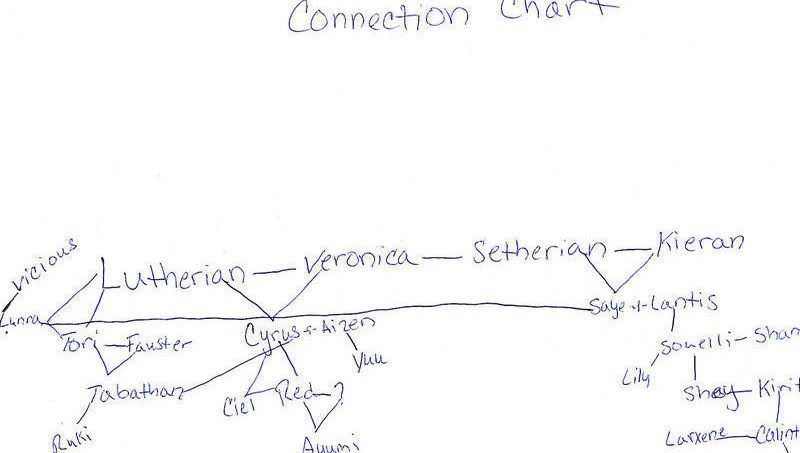 Connection Chart
Vicious
Lutherian — Veronica — Setherian — Kieran
Lunna
Saye & Lantis
Cyrus & Aizen
Tori — Fauster
Soueili - Shan
Yuu
Lily
Tabathaz
Shey — Kirit
Ciel Red - ?
Ruki
Larxene — Calint
Ayumi